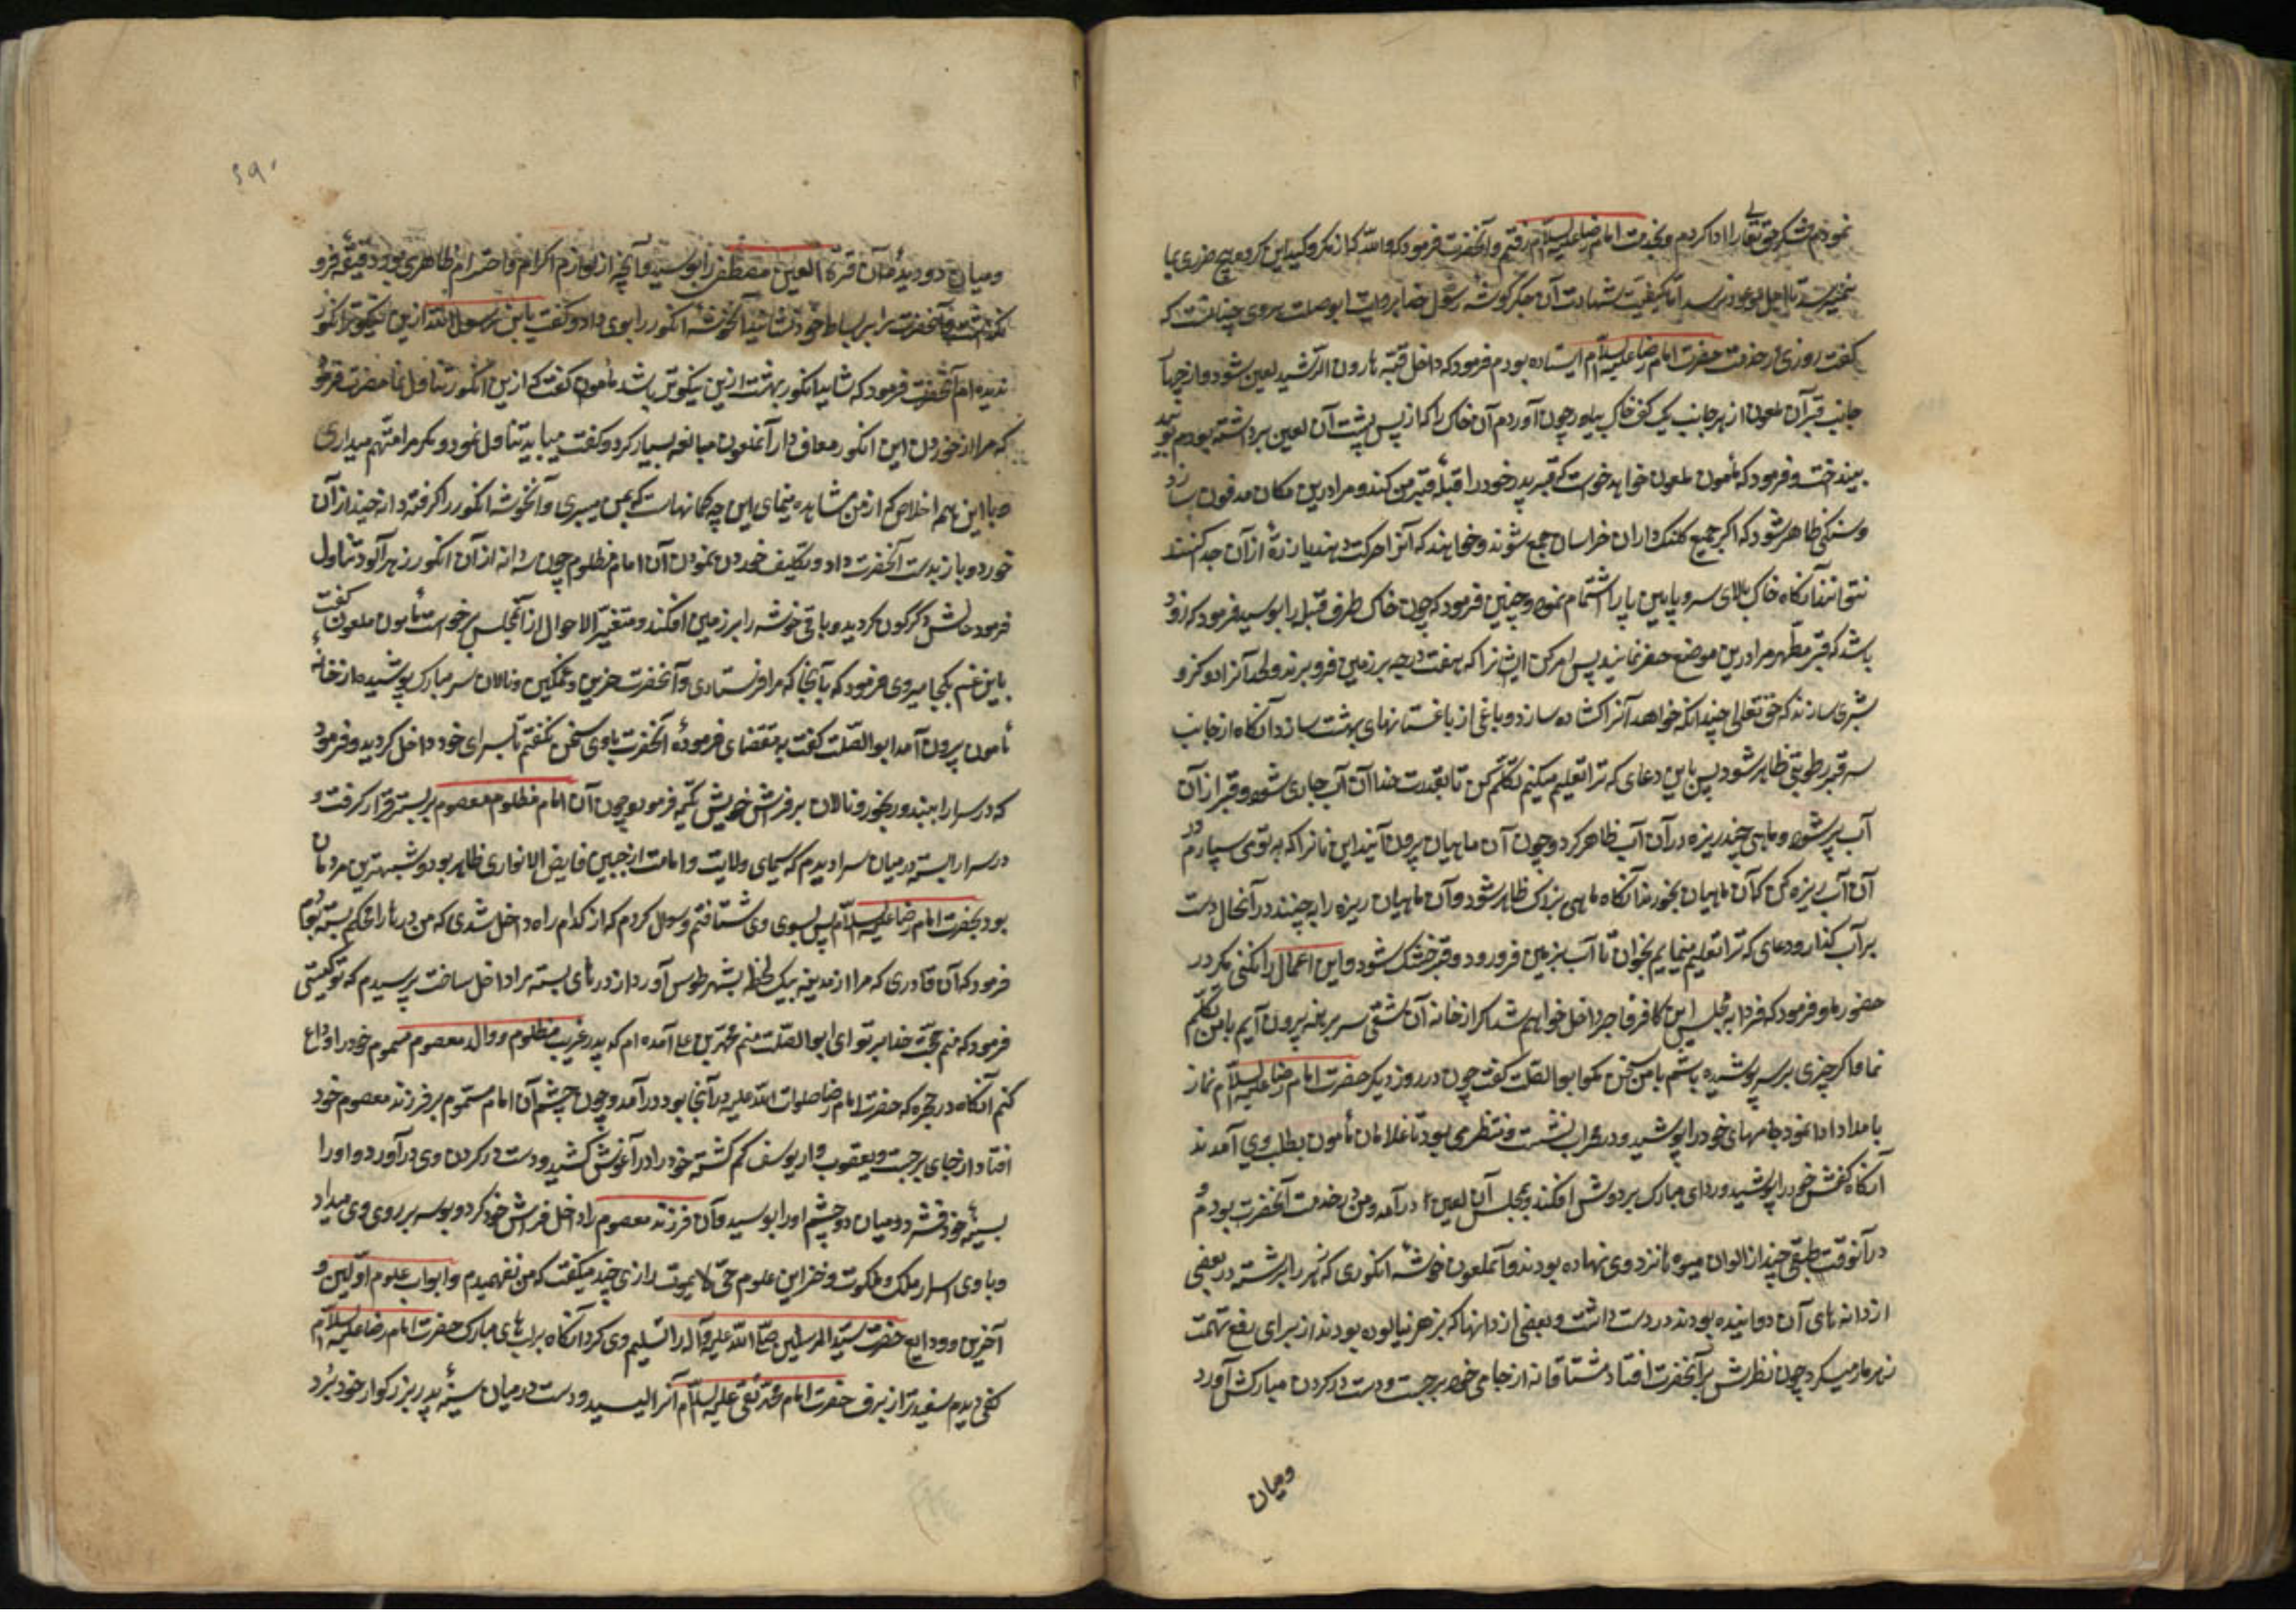 نمودم شکر حق تعالی را ادا کردم و بخدمت امام رضا علیه السلام رفتم و آنحضرت فرمود که والله که از مکر و کید این گروه هیچ ضرری بما
نمیرسد تا اجل موعود نرسد اما کیفیت شهادت آن جگر گوشه رسول خدا بروایت ابوصلت هروی چنانست که
گفت روزی در خدمت حضرت امام رضا علیه السلام ایستاده بودم فرمود که داخل قبه هارون الرشید لعین شو و از چهار
جانب قبر آن ملعون از هر جانب یک کف خاک بیاور چون آوردم آن خاک را که از پس پشت آن لعین برداشته بودم بوئید
بینداخت و فرمود که مأمون ملعون خواهد خواست که قبر پدر خود را قبله قبر من کند و مرا درین مکان مدفون سازد
و سنگی ظاهر شود که اگر جمیع کلنک داران خراسان جمع شوند و خواهند که آنرا حرکت دهند یا ذره از آن جدا کنند
نتوانند آنگاه خاک بالای سر و پایین پا را اشتمام نموده چنین فرمود که چون خاک طرف قبله را بوسید فرمود که زود
باشد که قبر مطهر مرا درین موضع حفر نمایند پس امر کن ایشانرا که هفت درجه بر زمین فرو برند و لحد آنرا دو گز و
شبری سازند که حق تعالی چندانکه خواهد آنرا گشاده سازد و باغی از باغستانهای بهشت سازد آنگاه از جانب
سر قبر رطوبتی ظاهر شود پس باین دعای که ترا تعلیم میکنم تکلم کن تا بقدرت خدا آن آب جاری شود و قبر از آن
آب پر شود و ماهی چند ریزه در آن آب ظاهر گردد چون آن ماهیان پرون آیند این نانرا که به تو می سپارم در
آن آب ریزه کن که آن ماهیان بخورند آنگاه ماهی بزرک ظاهر شود و آن ماهیان ریزه را بر چنند در آنحال دست
بر آب گذار و دعای که ترا تعلیم مینمایم بخوان تا آب بزمین فرو رود و قبر خشک شود و این اعمال را نکنی مگر در
حضور مأمون فرمود که فردا بمجلس این کافر فاجر داخل خواهم شد اگر از خانه آن شقی سر برهنه پرون آیم با من تکلم
نما و اگر چیزی بر سر پوشیده باشم با من سخن مگو ابوالصلت گفت چون در روز دیگر حضرت امام رضا علیه السلام نماز
بامداد ادا نمود جامهای خود را پوشید و در محراب نشست و منتظر می بود تا غلامان مأمون بطلب وی آمدند
آنگاه کفش خود را پوشید و ردای مبارک بر دوش افکند و بمجلس آن لعین درآمد و من در خدمت آنحضرت بودم و
در آنوقت طبقی چند از الوان میوه ها نزد وی نهاده بودند و آن ملعون خوشه انگوری که زهر را برشته در بعضی
از دانه های آن دوانیده بودند در دست داشت و بعضی از دانها که بزهر نیالوده بودند از برای رفع تهمت
زهرمار میکرد چون نظرش بر آنحضرت افتاد مشتاقانه از جای خود برجست و دست در گردن مبارکش آورد
ومیان
۶۹۰
و میان دو دیده آن قرة العین مصطفی را بوسید و آنچه از لوازم اکرام و احترام ظاهری بود دقیقه فرو
نگذاشت و آنحضرت را بر بساط خود نشانید آنخوشه انگور را بوی داد و گفت یا بن رسول الله ازین نیکوتر انگور
ندیده ام آنحضرت فرمود که شاید انگور بهشت ازین نیکوتر باشد مأمون گفت که ازین انگور تناول نما حضرت فرمود
که مرا از خوردن این انگور معاف دار آن ملعون مبالغه بسیار کرد و گفت میباید تناول نمود و مگر مرا متهم میداری
با این همه اخلاص که از من مشاهده مینمای این چه گمانهاست که بمن میبری و آنخوشه انگور را گرفته دانه چند از آن
خورد و باز بدست آنحضرت داد و تکلیف خوردن نمود آن امام مظلوم چون سه دانه از آن انگور زهرآلود تناول
فرمود حالش دگرگون گردید و باقی خوشه را بر زمین افکند و متغیر الاحوال از آن مجلس برخواست مأمون ملعون گفت
یا بن عم بکجا میروی فرمود که بآنجا که مرا فرستادی و آنحضرت حزین و غمگین و نالان سر مبارک پوشیده از خانه
مأمون پرون آمد ابوالصلت گفت به مقتضای فرموده آنحضرت با وی سخن نگفتم تا بسرای خود داخل گردید و فرمود
که در سرا را ببند و رنجور و نالان بر فرش خویش تکیه فرمود چون آن امام مظلوم معصوم بر بستر قرار گرفت و
در سرا را بسته در میان سرا دیدم که سیمای ولایت و امامت از جبین فایض الانواری ظاهر بود و شبیهترین مردمان
بود بحضرت امام رضا علیه السلام پس بسوی وی شتافتم و سوال کردم که از کدام راه داخل شدی که من درها را محکم بسته بودم
فرمود که آن قادری که مرا از مدینه بیک لحظه بشهر طوس آورد از درهای بسته مرا داخل ساخت پرسیدم که تو کیستی
فرمود که منم حجت خدا بر تو ای ابوالصلت منم محمد بن علی آمده ام که پدر غریب مظلوم و والد معصوم مسموم خود را وداع
کنم آنگاه در حجره که حضرت امام رضا صلوات الله علیه در آنجا بود درآمد و چون چشم آن امام مسموم بر فرزند معصوم خود
افتاد از جای برجست و یعقوب وار یوسف گم گشته خود را در آغوش کشید و دست در گردن وی درآورد و او را
بسینه خود فشرد و میان دو چشم او را بوسید و آن فرزند معصوم را داخل فراش خود کرد و بوسه بر روی وی میداد
و با وی اسرار ملک و ملکوت و خزاین علوم حی لا یموت رازی چند میگفت که من نفهمیدم و ابواب علوم اولین و
آخرین و ودایع حضرت سید المرسلین صلی الله علیه و آله را تسلیم وی کرد آنگاه بر لب های مبارک حضرت امام رضا علیه السلام
کفی دیدم سفیدتر از برف حضرت امام محمد تقی علیه السلام آنرا لیسید و دست در میان سینه پدر بزرگوار خود برد